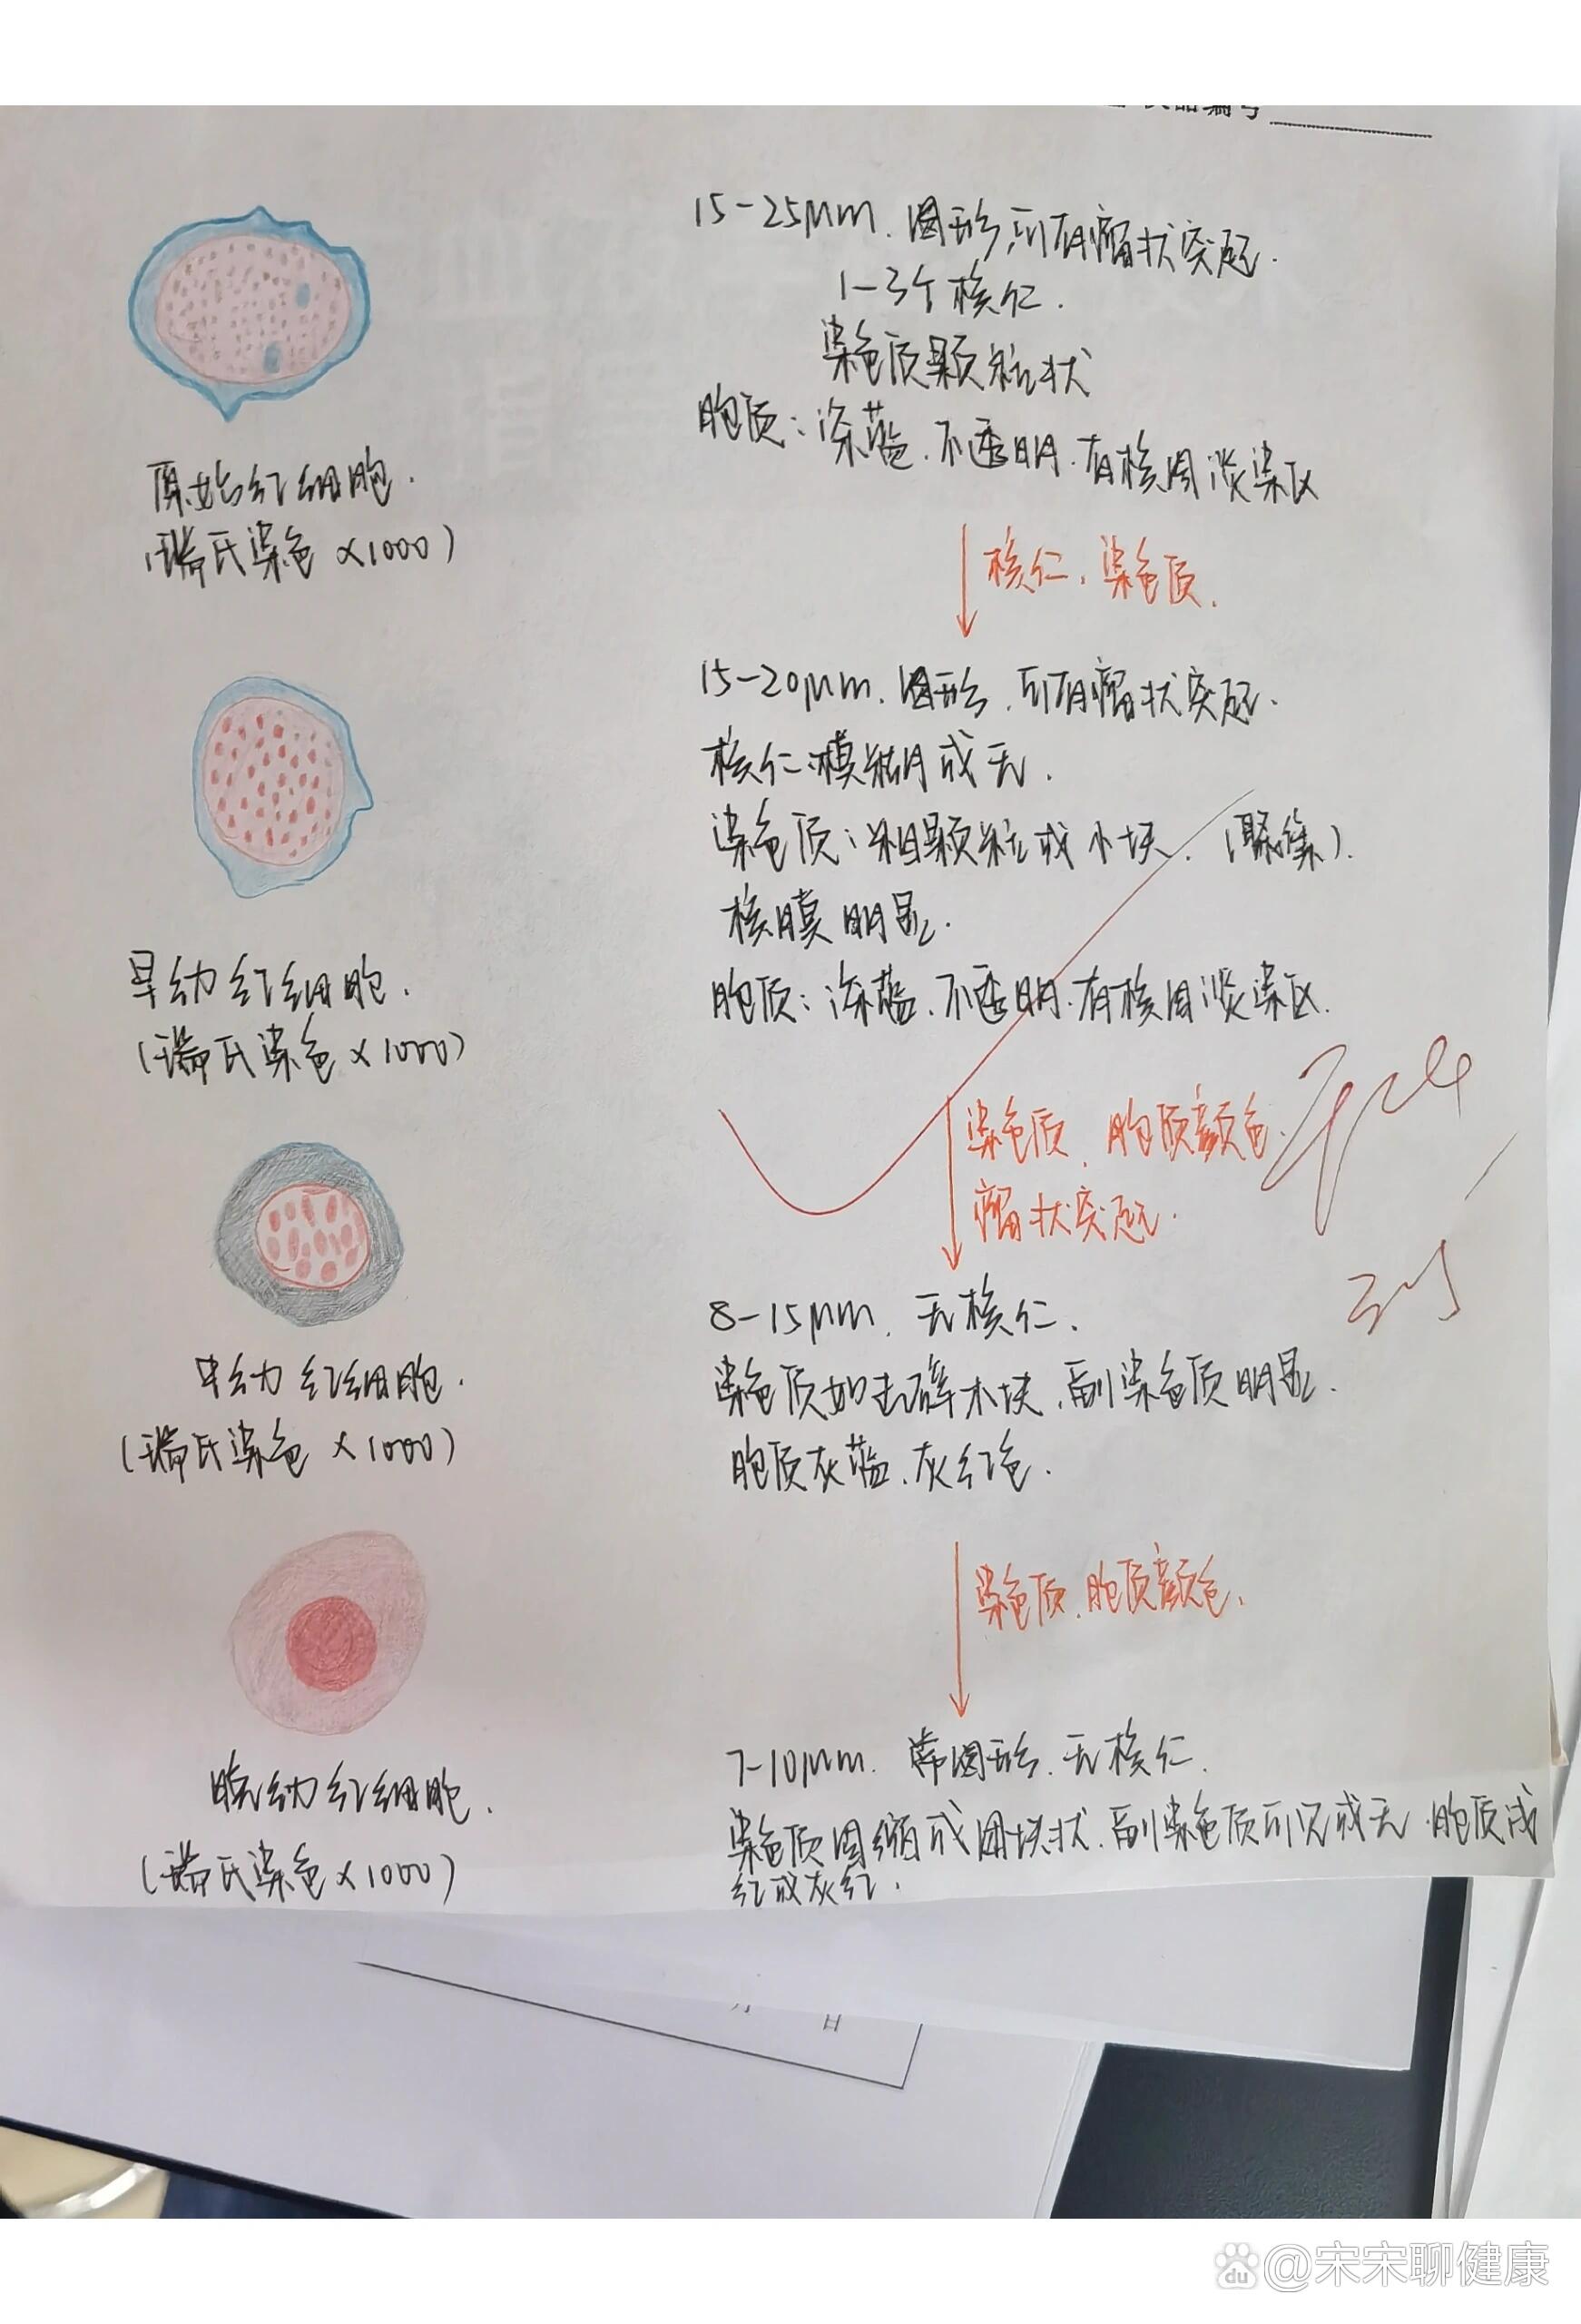 编号
15-25μm. 圆形,可有瘤状突起.
1-3个核仁.
染色质颗粒状
胞质:深蓝.不透明.有核周淡染区
原始红细胞.
(瑞氏染色 ×1000)
核仁、染色质.
15-20μm. 圆形.可有瘤状突起.
核仁模糊或无.
染色质:粗颗粒或小块.(聚集).
核膜明显.
胞质:深蓝.不透明.有核周淡染区.
早幼红细胞.
(瑞氏染色×1000)
染色质、胞质颜色.
瘤状突起.
8-15μm. 无核仁.
染色质如击碎木块.副染色质明显.
胞质灰蓝、灰红色.
中幼红细胞.
(瑞氏染色 ×1000)
染色质.胞质颜色.
7-10μm. 常圆形.无核仁.
染色质固缩成团块状.副染色质可见或无.胞质成
红或灰红.
晚幼红细胞.
(瑞氏染色×1000)
月 日
du @宋宋聊健康